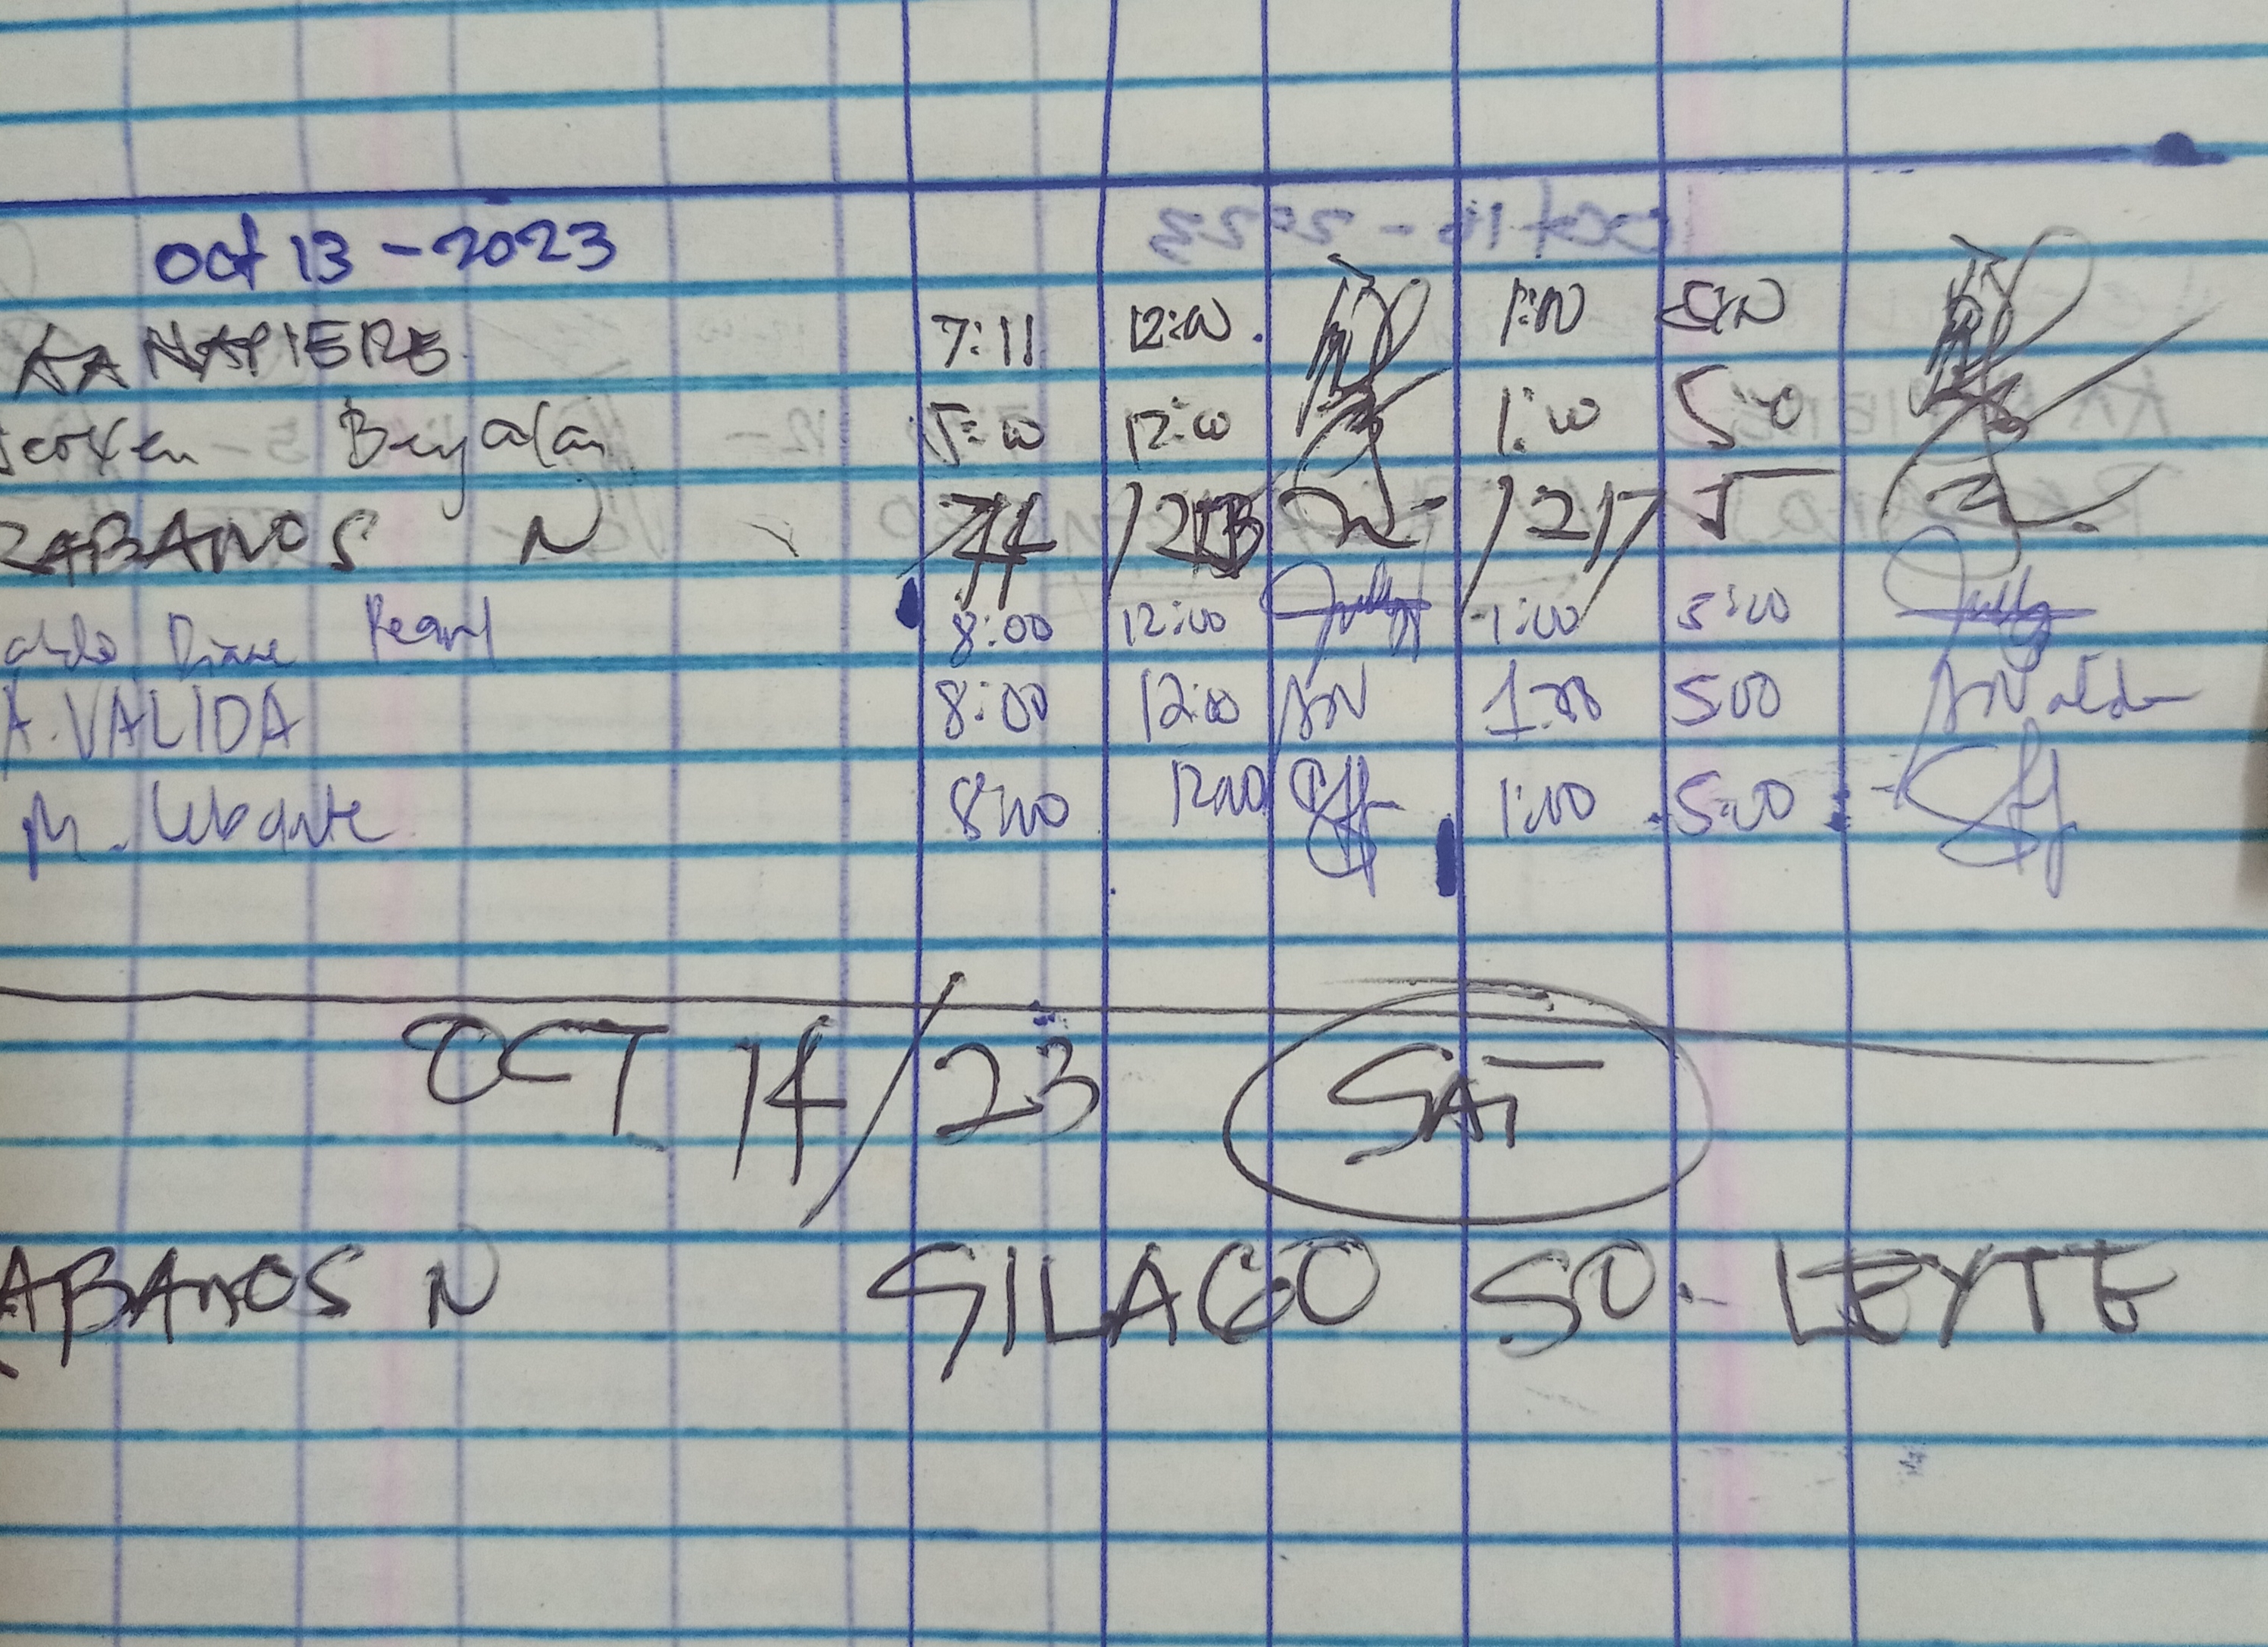 oct 13 - 2023
KA NAPIERE 7:11 12:00 1:00 5:00
12:00 1:00 5:00
RABANOS N 714 1213 1217 5
Diane Pearl 8:00 12:00 1:00 5:00
A. VALIDA 8:00 12:00 1:00 5:00
M. 8:00 12:00 1:00 5:00
OCT 14/23 SAT
ABANOS N SILAGO SO. LEYTE